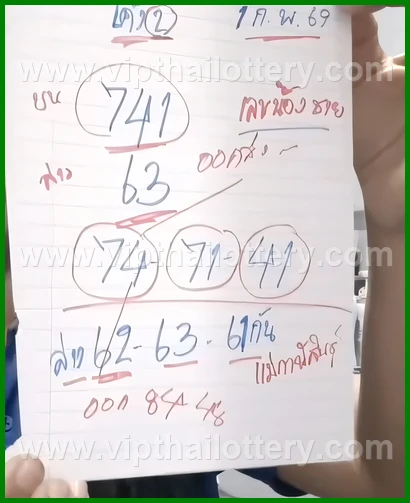 โค้ง(2) 1 ก.พ.69
www.vipthailottery.com
บน 741 เลขน้องชาย
ล่าง 63
www.vipthailottery.com
74 71 41
ล่าง 62 - 63 - 61 กัน
ออก 84 48
www.vipthailottery.com